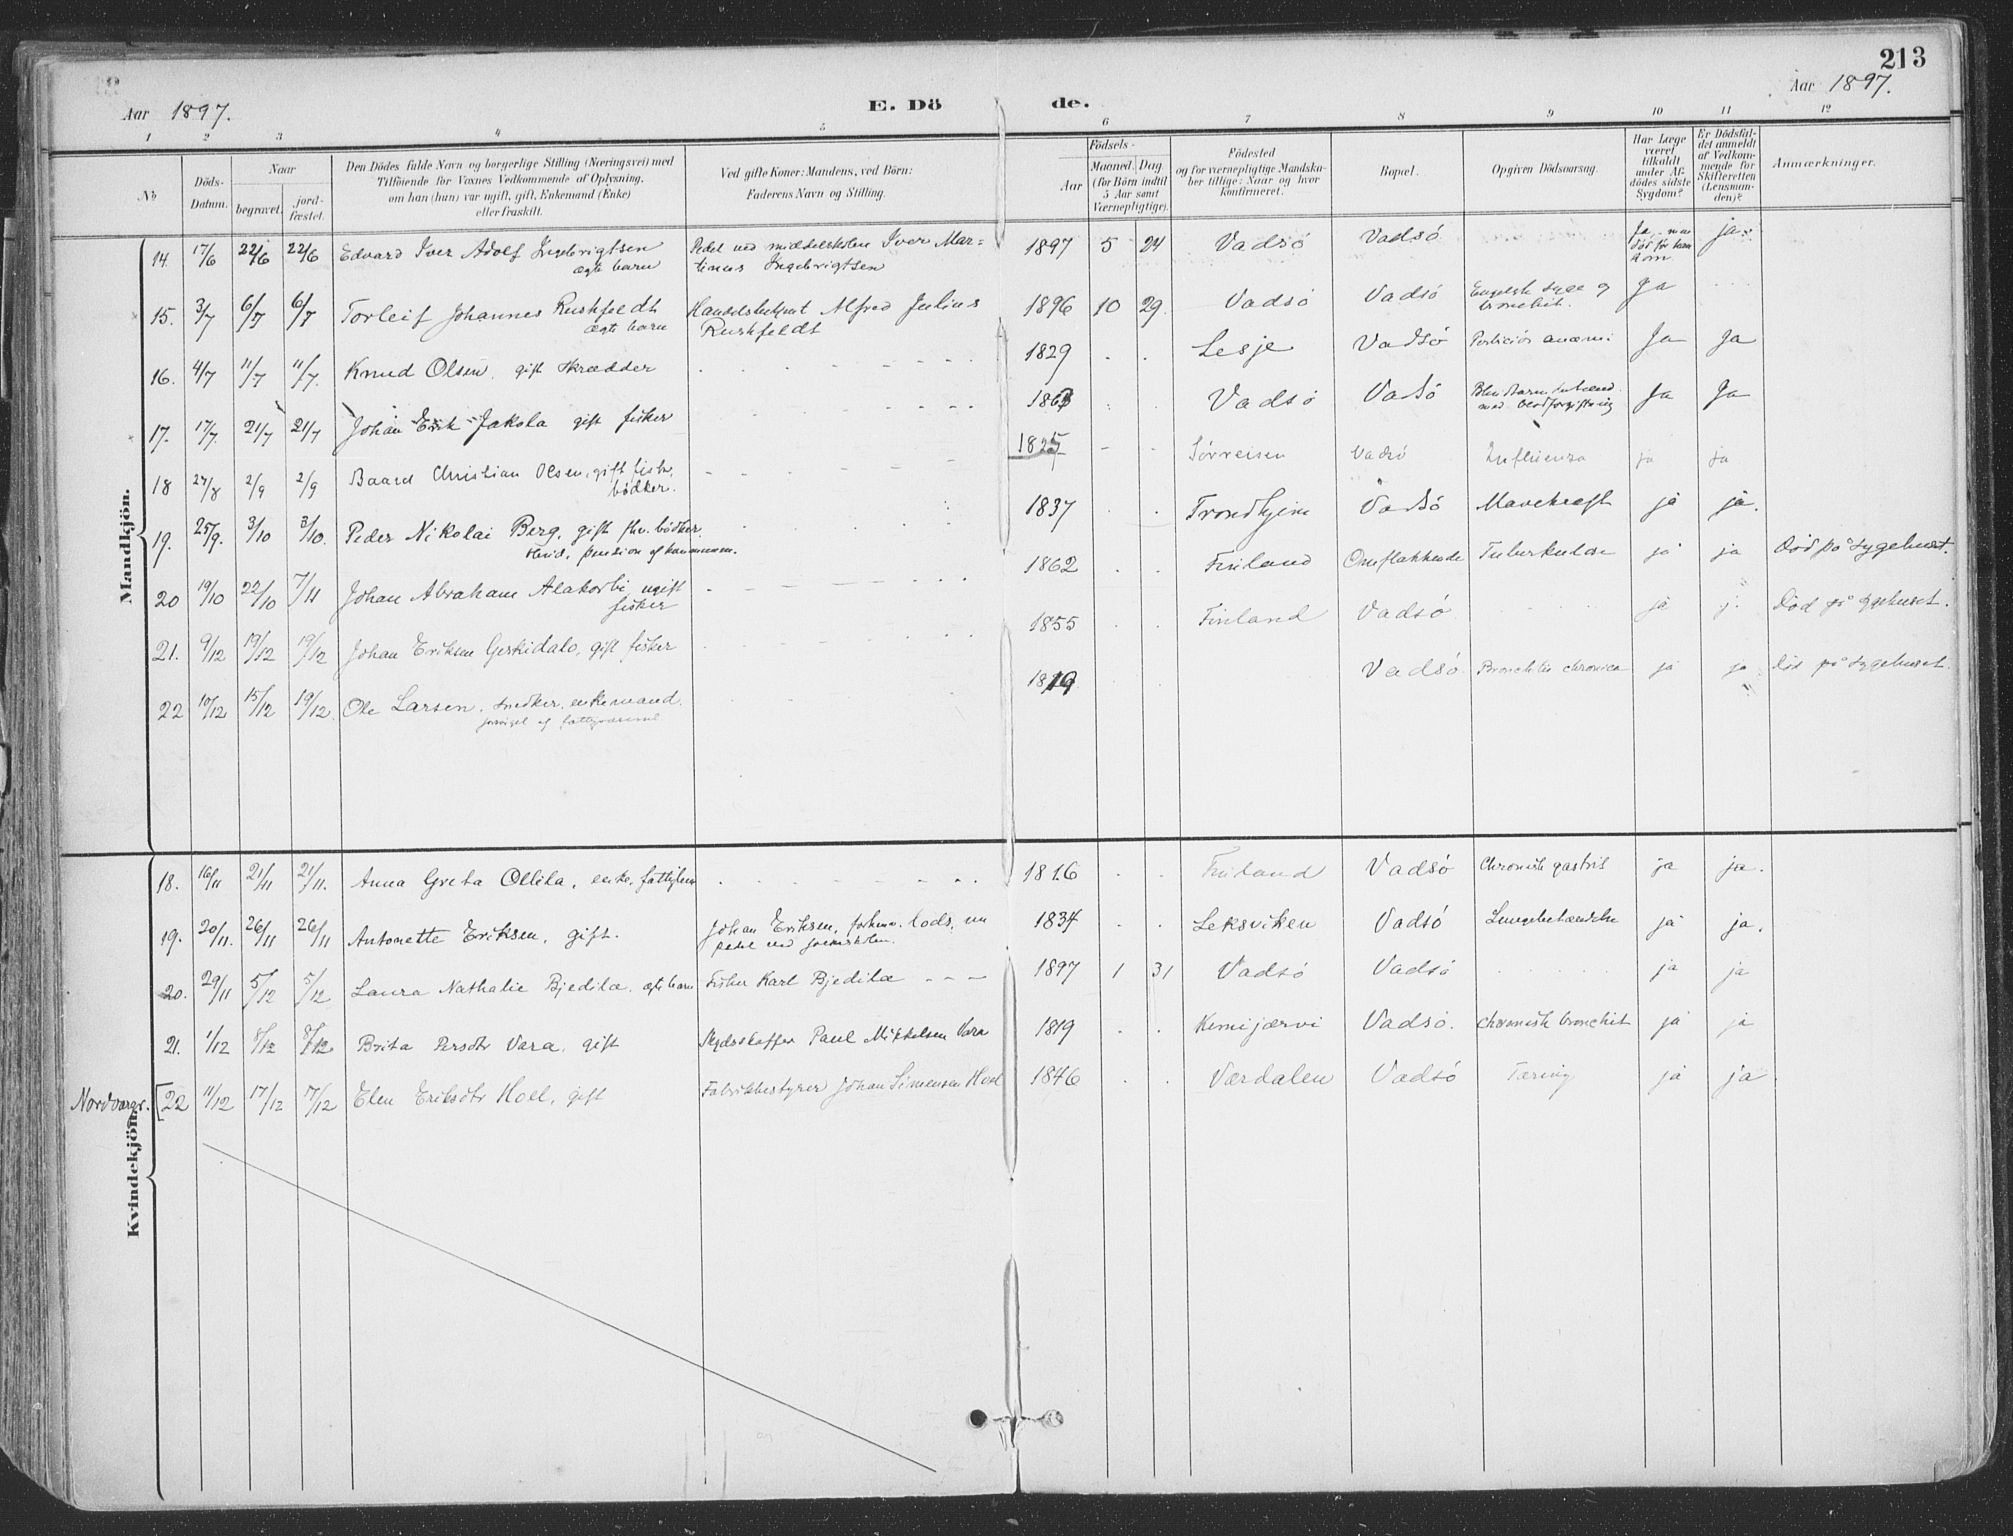 213
Aar 1897. E. Dö de. Aar 1897.
1 2 3 4 5 6 7 8 9 10 11 12
No
Döds-Datum.
Naar
begravet.
jord-fæstet.
Den Dödes fulde Navn og borgerlige Stilling (Næringsvei) med
Tilföiende for Voxnes Vedkommende af Oplysning,
om han (hun) var ugift, gift, Enkemand (Enke)
eller fraskilt.
Ved gifte Koner: Mandens, ved Börn:
Faderens Navn og Stilling.
Födsels-
Aar
Maaned. Dag.
(for Börn indtil
5 Aar samt
Værnepligtige).
Födested
og for værnepligtige Mandska-
ber tillige: Naar og hvor
konfirmeret.
Bopæl.
Opgiven Dödsaarsag.
Har Læge
været
tilkaldt
under Af-
dödes sidste
Sygdom?
Er Dödsfal-
det anmeldt
af Vedkom-
mende for
Skifteretten
(Lensman-
den)?
Anmærkninger.
Mandkjön.
14. 17/6 22/6 22/6 Edvard Iver Adolf Ingebrigtsen Pedel ved middelskolen Iver Mar= 1897 5 24 Vadsö Vadsö Ja, ja.
ægte barn tinus Ingebrigtsen
15. 3/7 6/7 6/7 Torleif Johannes Rushfeldt Handelsbetjent Alfred Julius 1896 10 29. Vadsö Vadsö Engelsk syge og Ja
ægte barn Rushfeldt bronchit.
16. 4/7 11/7 11/7. Knud Olsen, gift Skrædder 1829 Lesje Vadsö anæmi Ja Ja
17. 17/7. 21/7 21/7 Johan Erik Jakola gift fisker 1863 Vadsö Vadsö Ja Ja
med blodforgiftning
18 27/8 2/9 2/9 Baard Christian Olsen, gift fisk., 1825 Sörreisen Vadsö Influenza ja ja
bödker.
19. 25/9. 3/10 3/10. Peder Nikolai Berg, gift fhv. bödker. 1837 Trondhjem Vadsö Mavekræft ja ja.
pension af kommunen.
20 19/10 22/10 7/11 Johan Abraham Alakorbi ugift 1862 Finland Omflakkende Tuberkulose ja ja död på sygehuset.
fisker
21. 9/12 19/12 19/12 Johan Eriksen Geskidalo, gift fisker 1855 Finland Vadsö ja j. död på sygehuset.
22 10/12 15/12 19/12. Ole Larsen, snedker, enkemand. 1819 Vadsö Bronchitis chronica ja ja död på sygehuset.
forsörget af fattigvæsenet
Kvindekjön.
18. 16/11 21/11 21/11. Anna Greta Ollila, enke, fattiglem 1816 Finland Vadsö Chronisk gastrit ja ja.
19. 20/11. 26/11 26/11 Antonette Eriksen, gift. Johan Eriksen, forhenv. lods, nu 1834 Leksviken Vadsö Lungebetændelse ja ja.
pedel ved folkeskolen.
20. 29/11 5/12 5/12 Laura Nathalie Bjedila, ægte barn Fisker Karl Bjedila 1897 1 31 Vadsö Vadsö ja ja
21. 1/12 8/12 8/12 Brita Persdtr Vara, gift Skydsskaffer Paul Mikkelsen Vara 1819 Kemijærvi Vadsö. chronisk bronchit ja ja
Nordvarg. [22 11/12 17/12 17/12 Elen Eriksdtr Hoel, gift Fabrikbestyrer Johan Simensen Hoel 1846 Værdalen Vadsö Tæring ja ja